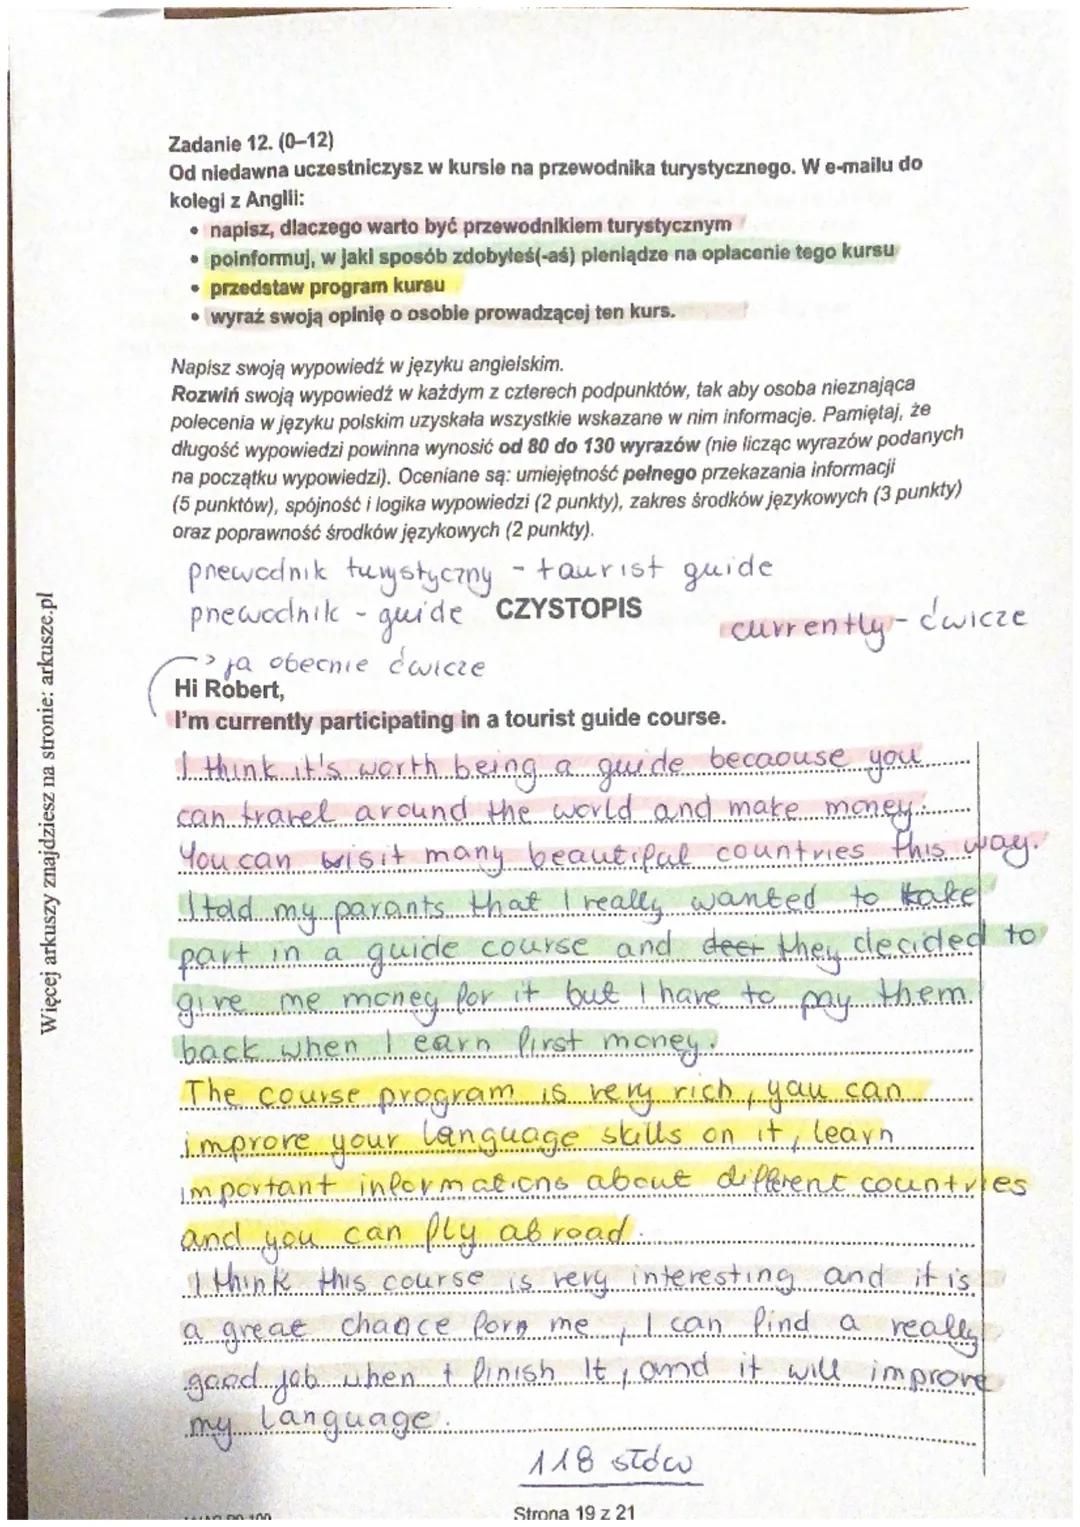 Zadanie 12. (0–12)
Od niedawna uczestniczysz w kursie na przewodnika turystycznego. W e-mailu do
kolegi z Anglii:
• napisz, dlaczego warto być przewodnikiem turystycznym
• poinformuj, w jaki sposób zdobyłeś(-aś) pieniądze na opłacenie tego kursu
• przedstaw program kursu
• wyraź swoją opinię o osobie prowadzącej ten kurs.
Napisz swoją wypowiedź w języku angielskim.
Rozwiń swoją wypowiedź w każdym z czterech podpunktów, tak aby osoba nieznająca
polecenia w języku polskim uzyskała wszystkie wskazane w nim informacje. Pamiętaj, że
długość wypowiedzi powinna wynosić od 80 do 130 wyrazów (nie licząc wyrazów podanych
na początku wypowiedzi). Oceniane są: umiejętność pełnego przekazania informacji
(5 punktów), spójność i logika wypowiedzi (2 punkty), zakres środków językowych (3 punkty)
oraz poprawność środków językowych (2 punkty).
przewodnik turystyczny - taurist guide
przewodnik - guide CZYSTOPIS
currently - ćwicze
ja obecnie ćwicze
Hi Robert,
I'm currently participating in a tourist guide course.
I think it's worth being a guide becaouse you
can travel around the world and make money.
You can visit many beautifal countries this way.
I told my parants that I really wanted to take
part in a guide course and they decided to
give me money for it but I have to pay them
back when I earn first money.
The course program is very rich, you can
improve your language skills on it, learn
important informations about different countries
and you can fly abroad.
I think this course is very interesting and it is
a great chance for me, I can find a really
good job when I finish it, and it will improve
my language.
118 słów
Strona 19 z 21
Więcej arkuszy znajdziesz na stronie: arkusze.pl